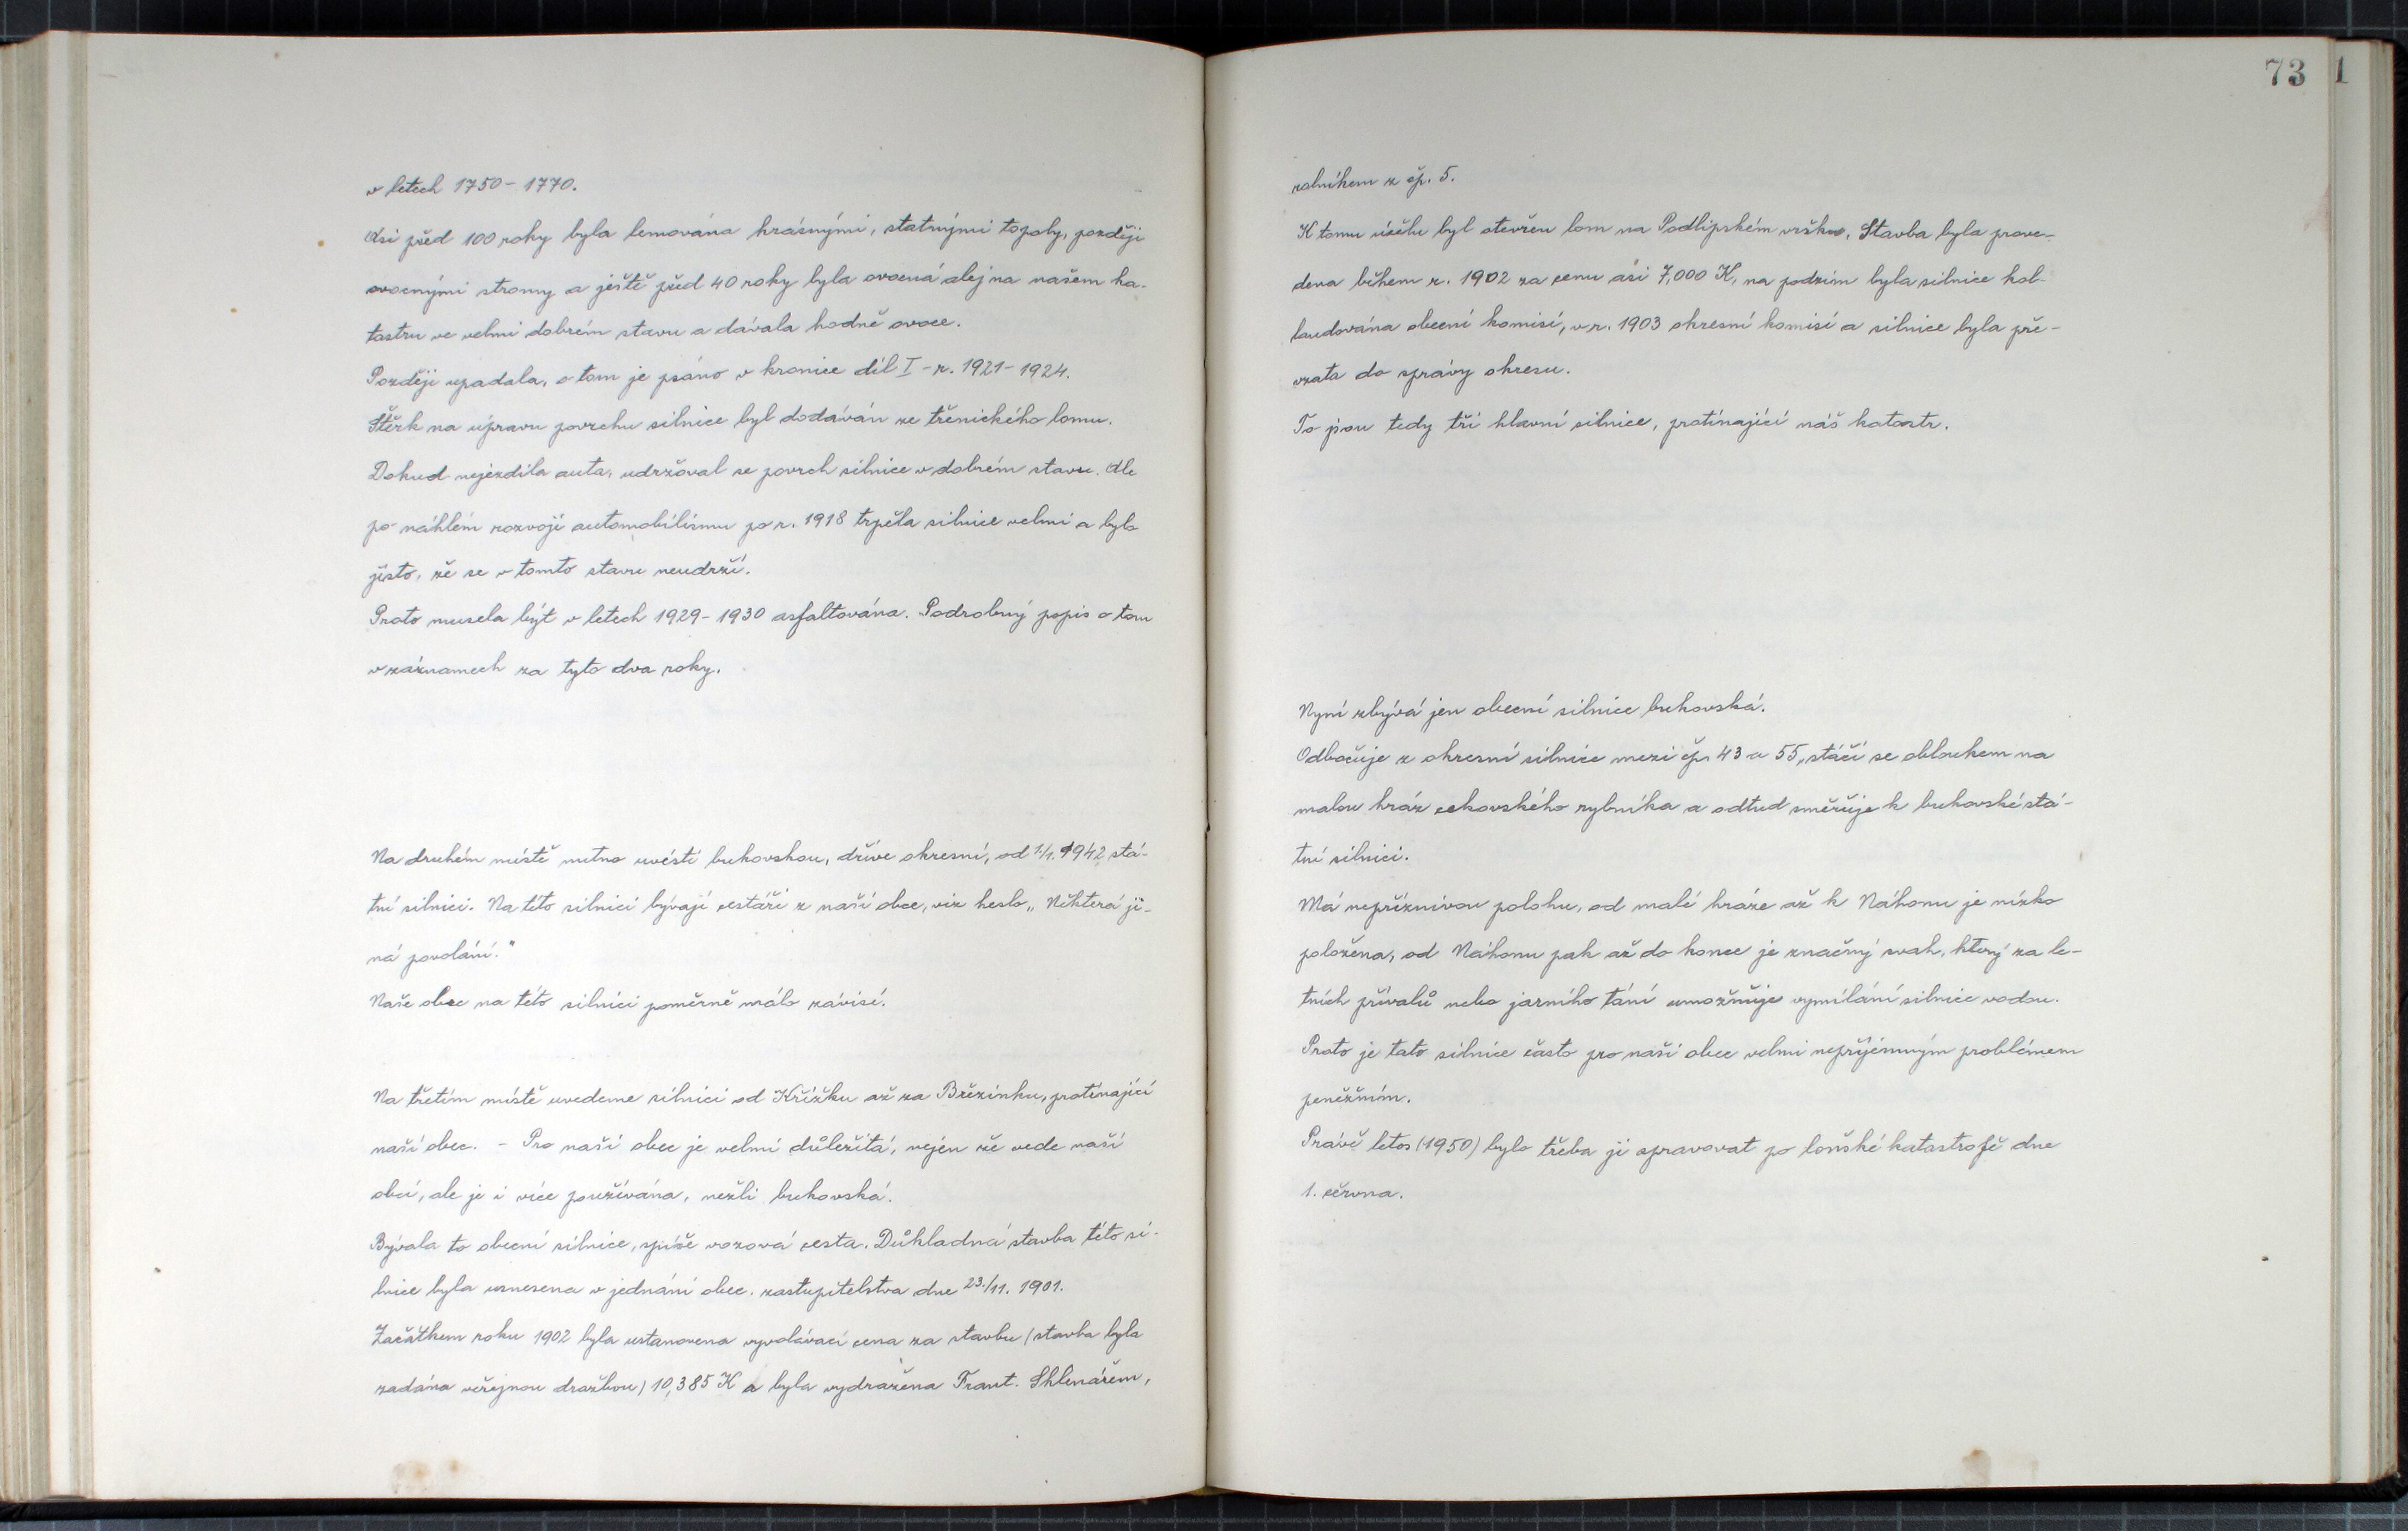 v letech 1750 - 1770.
Asi před 100 roky byla lemována krásnými, statnými topoly, později
ovocnými stromy a ještě před 40 roky byla ovocná alej na našem ka-
tastru ve velmi dobrém stavu a dávala hodně ovoce.
Později upadala, o tom je psáno v kronice díl I - r. 1921 - 1924.
Štěrk na úpravu povrchu silnice byl dodáván ze třenického lomu.
Dokud nejezdila auta, udržoval se povrch silnice v dobrém stavu. Ale
po náhlém rozvoji automobilismu po r. 1918 trpěla silnice velmi a bylo
jisto, že se v tomto stavu neudrží.
Proto musela být v letech 1929 - 1930 asfaltována. Podrobný popis o tom
v záznamech za tyto dva roky.
Na druhém místě nutno uvésti bukovskou, dříve okresní, od 1./1. 1942 stá-
tní silnici. Na této silnici bývají cestáři z naší obce, viz heslo „Některá ji-
ná povolání."
Naše obec na této silnici poměrně málo závisí.
Na třetím místě uvedeme silnici od Křížku až za Březinku, protínající
naší obec. - Pro naší obec je velmi důležitá, nejen že vede naší
obcí, ale je i více používána, nežli bukovská.
Bývala to obecní silnice, spíše vozová cesta. Důkladná stavba této si-
lnice byla usnesena v jednání obec. zastupitelstva dne 23./11. 1901.
Začátkem roku 1902 byla ustanovena vyvolávací cena za stavbu (stavba byla
zadána veřejnou dražbou) 10,385 K a byla vydražena Frant. Sklenářem,
73
1
rolníkem z čp. 5.
K tomu účelu byl otevřen lom na Podlipském vršku. Stavba byla prove-
dena během r. 1902 za cenu asi 7,000 K, na podzim byla silnice kol-
laudována obecní komisí, v r. 1903 okresní komisí a silnice byla pře-
vzata do správy okresu.
To jsou tedy tři hlavní silnice, protínající náš katastr.
Nyní zbývá jen obecní silnice bukovská.
Odbočuje z okresní silnice mezi čp. 43 a 55, stáčí se obloukem na
malou hráz cekovského rybníka a odtud směřuje k bukovské stá-
tní silnici.
Má nepříznivou polohu, od malé hráze až k Náhonu je nízko
položena, od Náhonu pak až do konce je značný svah, který za le-
tních přívalů nebo jarního tání umožňuje vymílání silnice vodou.
Proto je tato silnice často pro naši obec velmi nepříjemným problémem
peněžním.
Právě letos (1950) bylo třeba ji opravovat po loňské katastrofě dne
1. června.